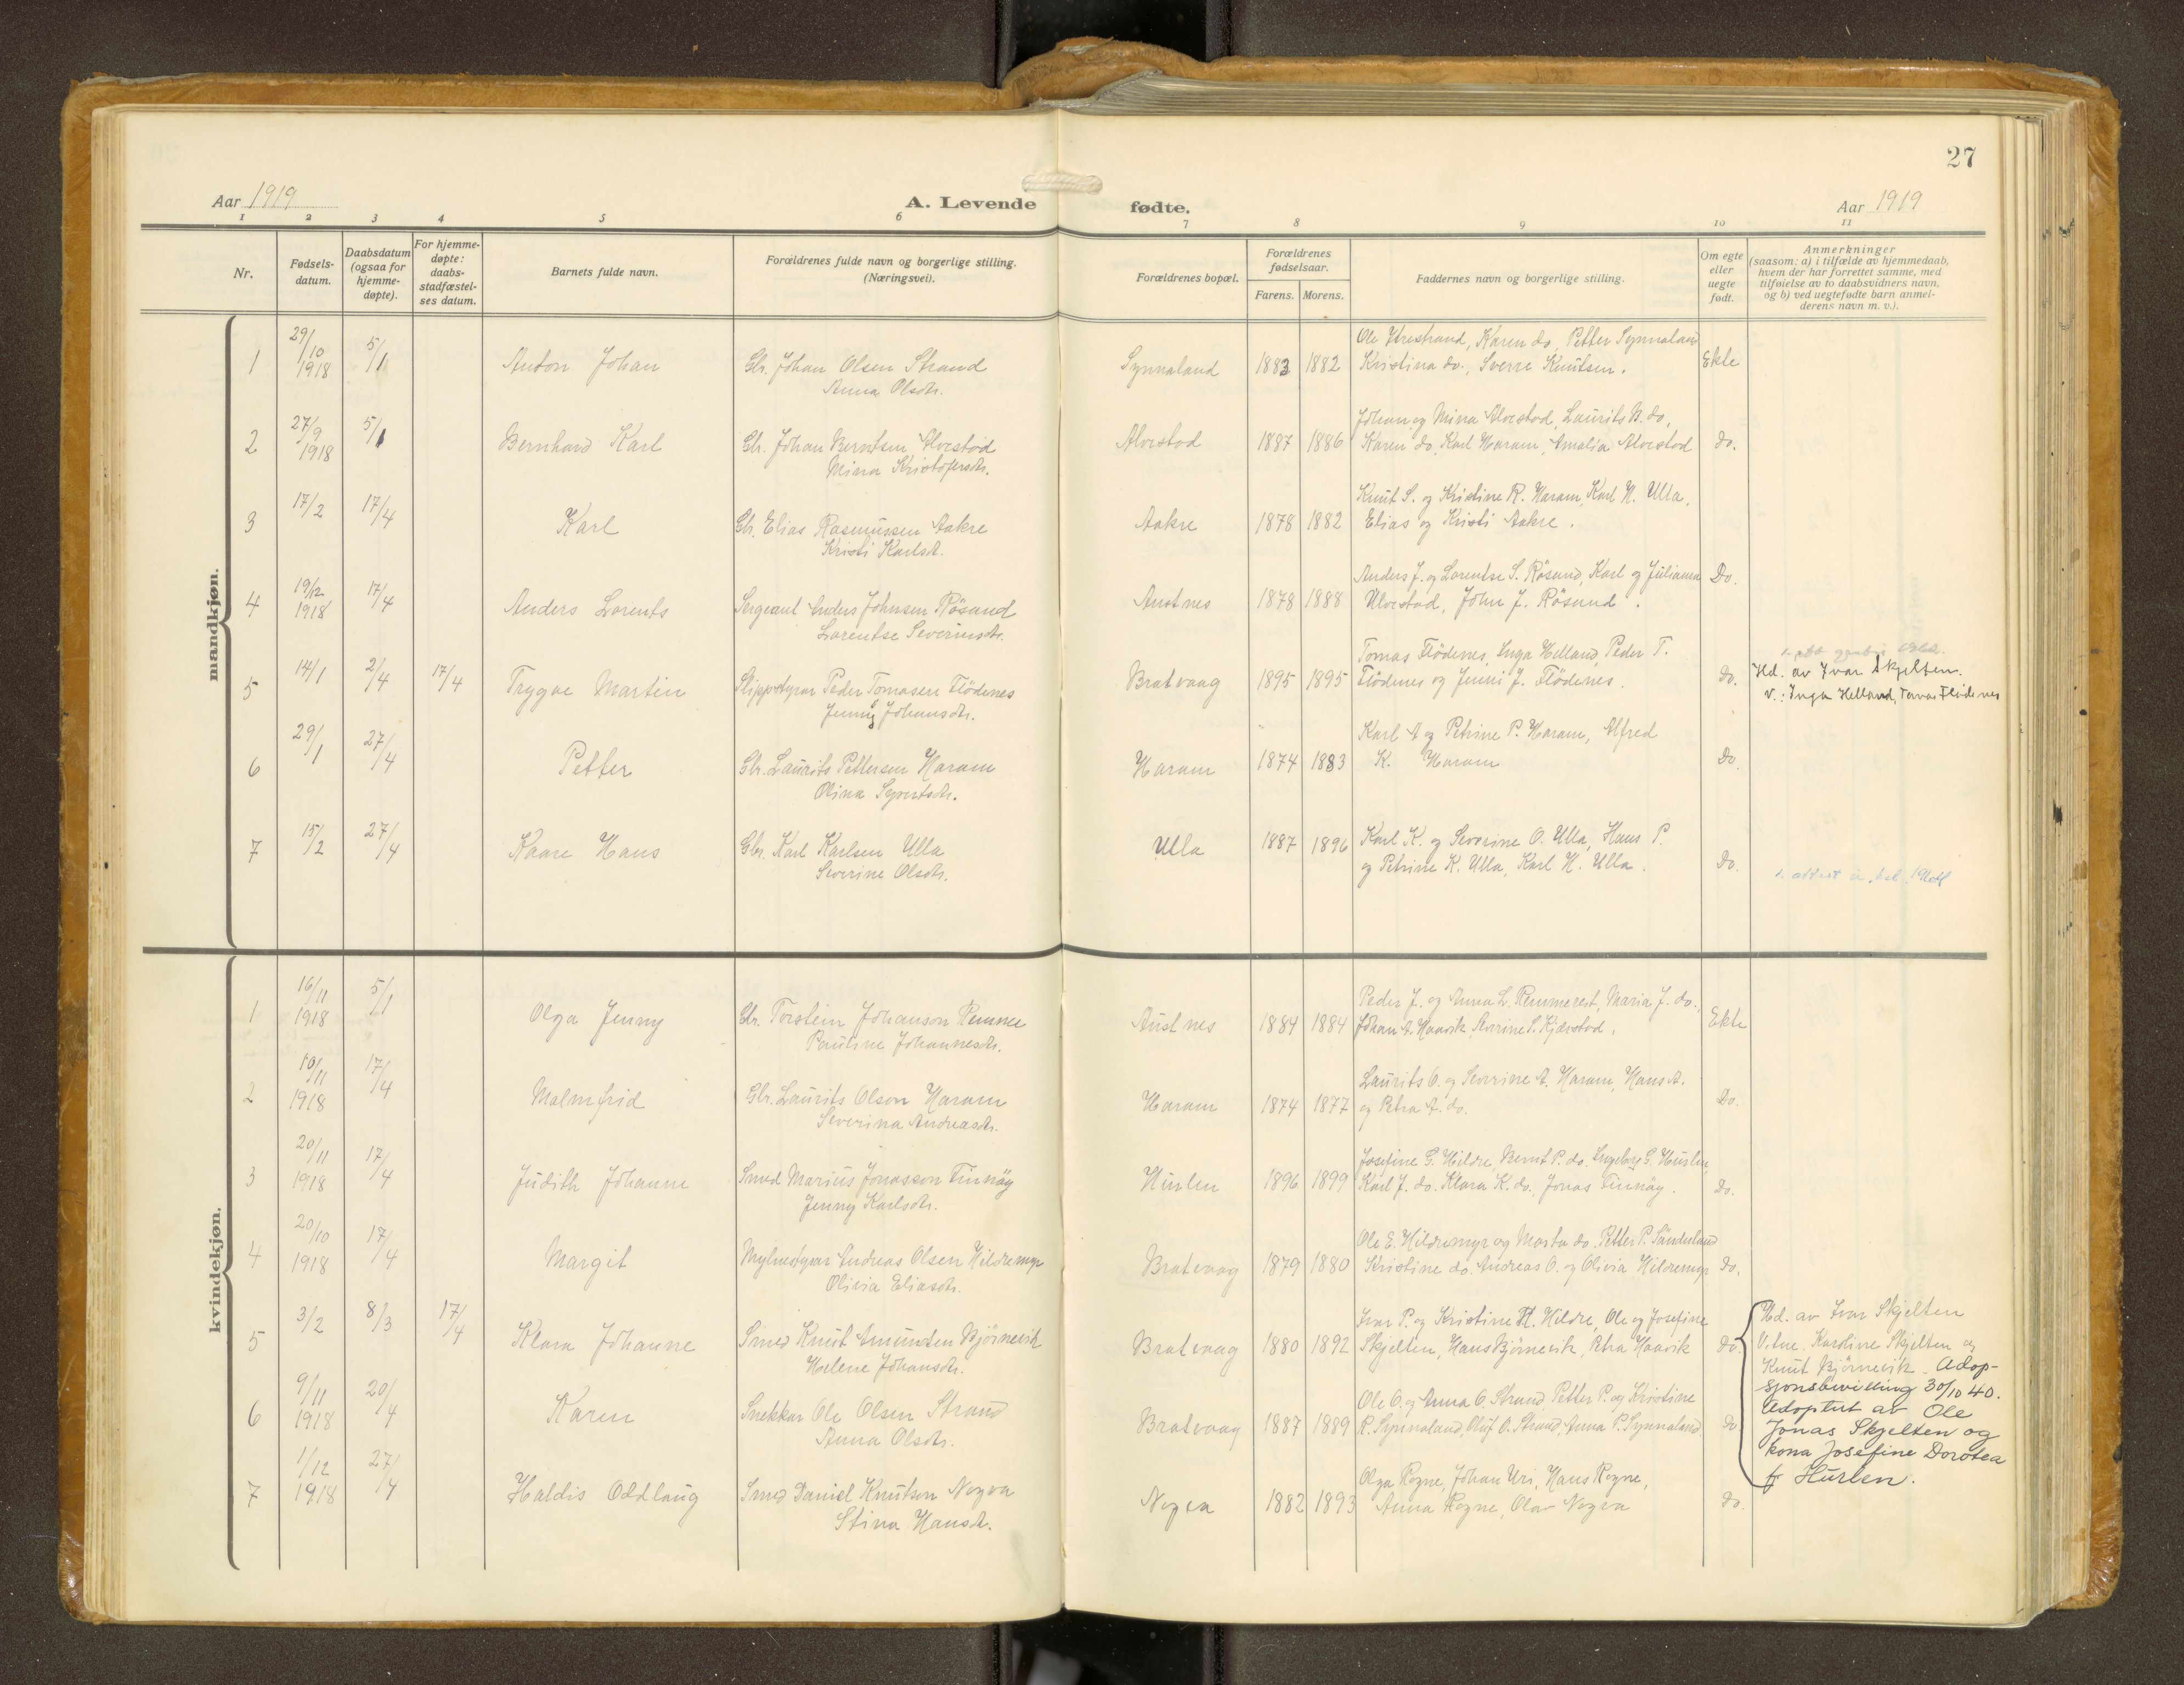 27
Aar 1919
A. Levende fødte.
Aar 1919
1 2 3 4 5 6 7 8 9 10 11
Nr.
Fødsels-
datum.
Daabsdatum
(ogsaa for
hjemme-
døpte).
For hjemme-
døpte:
daabs-
stadfæstel-
ses datum.
Barnets fulde navn.
Forældrenes fulde navn og borgerlige stilling.
(Næringsvei).
Forældrenes bopæl.
Forældrenes
fødselsaar.
Farens. Morens.
Faddernes navn og borgerlige stilling.
Om egte
eller
uegte
født.
Anmerkninger
(saasom: a) i tilfælde av hjemmedaab,
hvem der har forrettet samme, med
tilføielse av to daabsvidners navn,
og b) ved uegtefødte barn anmel-
derens navn m. v.).
mandkjøn.
1 29/10 1918 5/1 Anton Johan Gbr. Johan Olsen Strand
Anna Olsdtr.
Synnaland 1883 1882
Ole Strand, Karen do, Petter Synnaland
Kristina do., Sverre Knutsen.
Ekte
2 27/9 1918 5/1 Bernhard Karl Gbr. Johan Berntsen Alvestad
Mina Kristofersdtr.
Alvestad 1887 1886
Johan og Mina Alvestad, Laurits B. do,
Karen do, Karl Haram, Amalia Alvestad
do.
3 17/2 17/4 Karl Gbr. Elias Rasmussen Aakre
Kristi Karlsdt.
Aakre 1878 1882
Knut S. og Kristine R. Haram, Karl H. Ulla,
Elias og Kristi Aakre.
4 19/12 1918 17/4 Anders Lorents Sergeant Anders Johnsen Røsund
Lorentse Severinsdtr.
Austnes 1878 1888
Anders J. og Lorentse S. Røsund, Karl og Juliana
Ulvestad, John J. Røsund.
Do.
5 14/1 2/4 17/4 Trygve Martin Slippstyrar Peder Tomasen Flödenes
Jenny Johansdtr.
Bratvaag 1895 1895
Tomas Flödenes, Inga Helland, Peder T.
Flödenes og Jenni J. Flödenes.
Do.
Hd. av Ivar Skjelten.
v.: Inga Helland, Tomas Flödenes
6 29/1 27/4 Petter Gbr. Laurits Pettersen Haram
Olina Syvertsdtr.
Haram 1874 1883
Karl A og Petrine P. Haram, Alfred
K. Haram
Do.
7 15/2 27/4 Kaare Hans Gbr. Karl Karlsen Ulla
Severine Olsdtr.
Ulla 1887 1896
Karl K. og Severine O. Ulla, Hans P.
og Petrine K. Ulla, Karl H. Ulla.
Do.
kvindekjøn.
1 16/11 1918 5/1 Olga Jenny Gbr. Torstein Johanson Remme
Pauline Johannesdtr.
Austnes 1884 1884
Peder J. og Anna L. Remmerest, Maria J. do.,
Johan A. Haavik, Severine S. Kjærstad.
Ekte
2 10/11 1918 17/4 Malmfrid Gbr. Laurits Olson Haram
Severina Andreasdtr.
Haram 1874 1877
Laurits O. og Severine A. Haram, Hans A.
og Petra A. do.
Do.
3 20/11 1918 17/4 Judith Johanne Smed Marius Jonasson Finnöy
Jenny Karlsdtr.
Hurlen 1896 1899
Josefine G. Hildre, Bernt P. do. Ingeborg G. Hurlen,
Karl J. do. Klara K. do., Jonas Finnöy.
Do.
4 20/10 1918 17/4 Margit Mylnestyrar Andreas Olsen Hildremyr
Olivia Eliasdtr.
Bratvaag 1879 1880
Ole E. Hildremyr og Marta do. Petter P. Sunderland
Kristine do. Andreas O. og Olivia Hildremyr
Do.
5 3/2 8/3 17/4 Klara Johanne Smed Knut Amundsen Bjørnevik
Helene Johansdtr.
Bratvaag 1880 1892
Ivar P. og Kristine H. Hildre, Ole og Josefine
Skjelten, Hans Bjørnevik, Petra Haavik
Do.
Hd. av Ivar Skjelten
Vitne. Karoline Skjelten og
Knut Bjørnevik. Adop-
sjonsbevilling 30/10 40.
Adoptert av Ole
Jonas Skjelten og
kona Josefine Dorotea
f. Hurlen.
6 9/11 1918 20/4 Karen Snekkar Ole Olsen Strand
Anna Olsdtr.
Bratvaag 1887 1889
Ole O. og Anna O. Strand, Petter P. og Kristine
R. Synnaland, Oluf O. Strand, Anna P. Synnaland.
Do
7 1/12 1918 27/4 Haldis Oddlaug Smed Daniel Knutson Nogva
Stina Hansdt.
Nogva 1882 1893
Olga Rogne, Johan Uri, Hans Rogne,
Anna Rogne, Olav Nogva
Do.